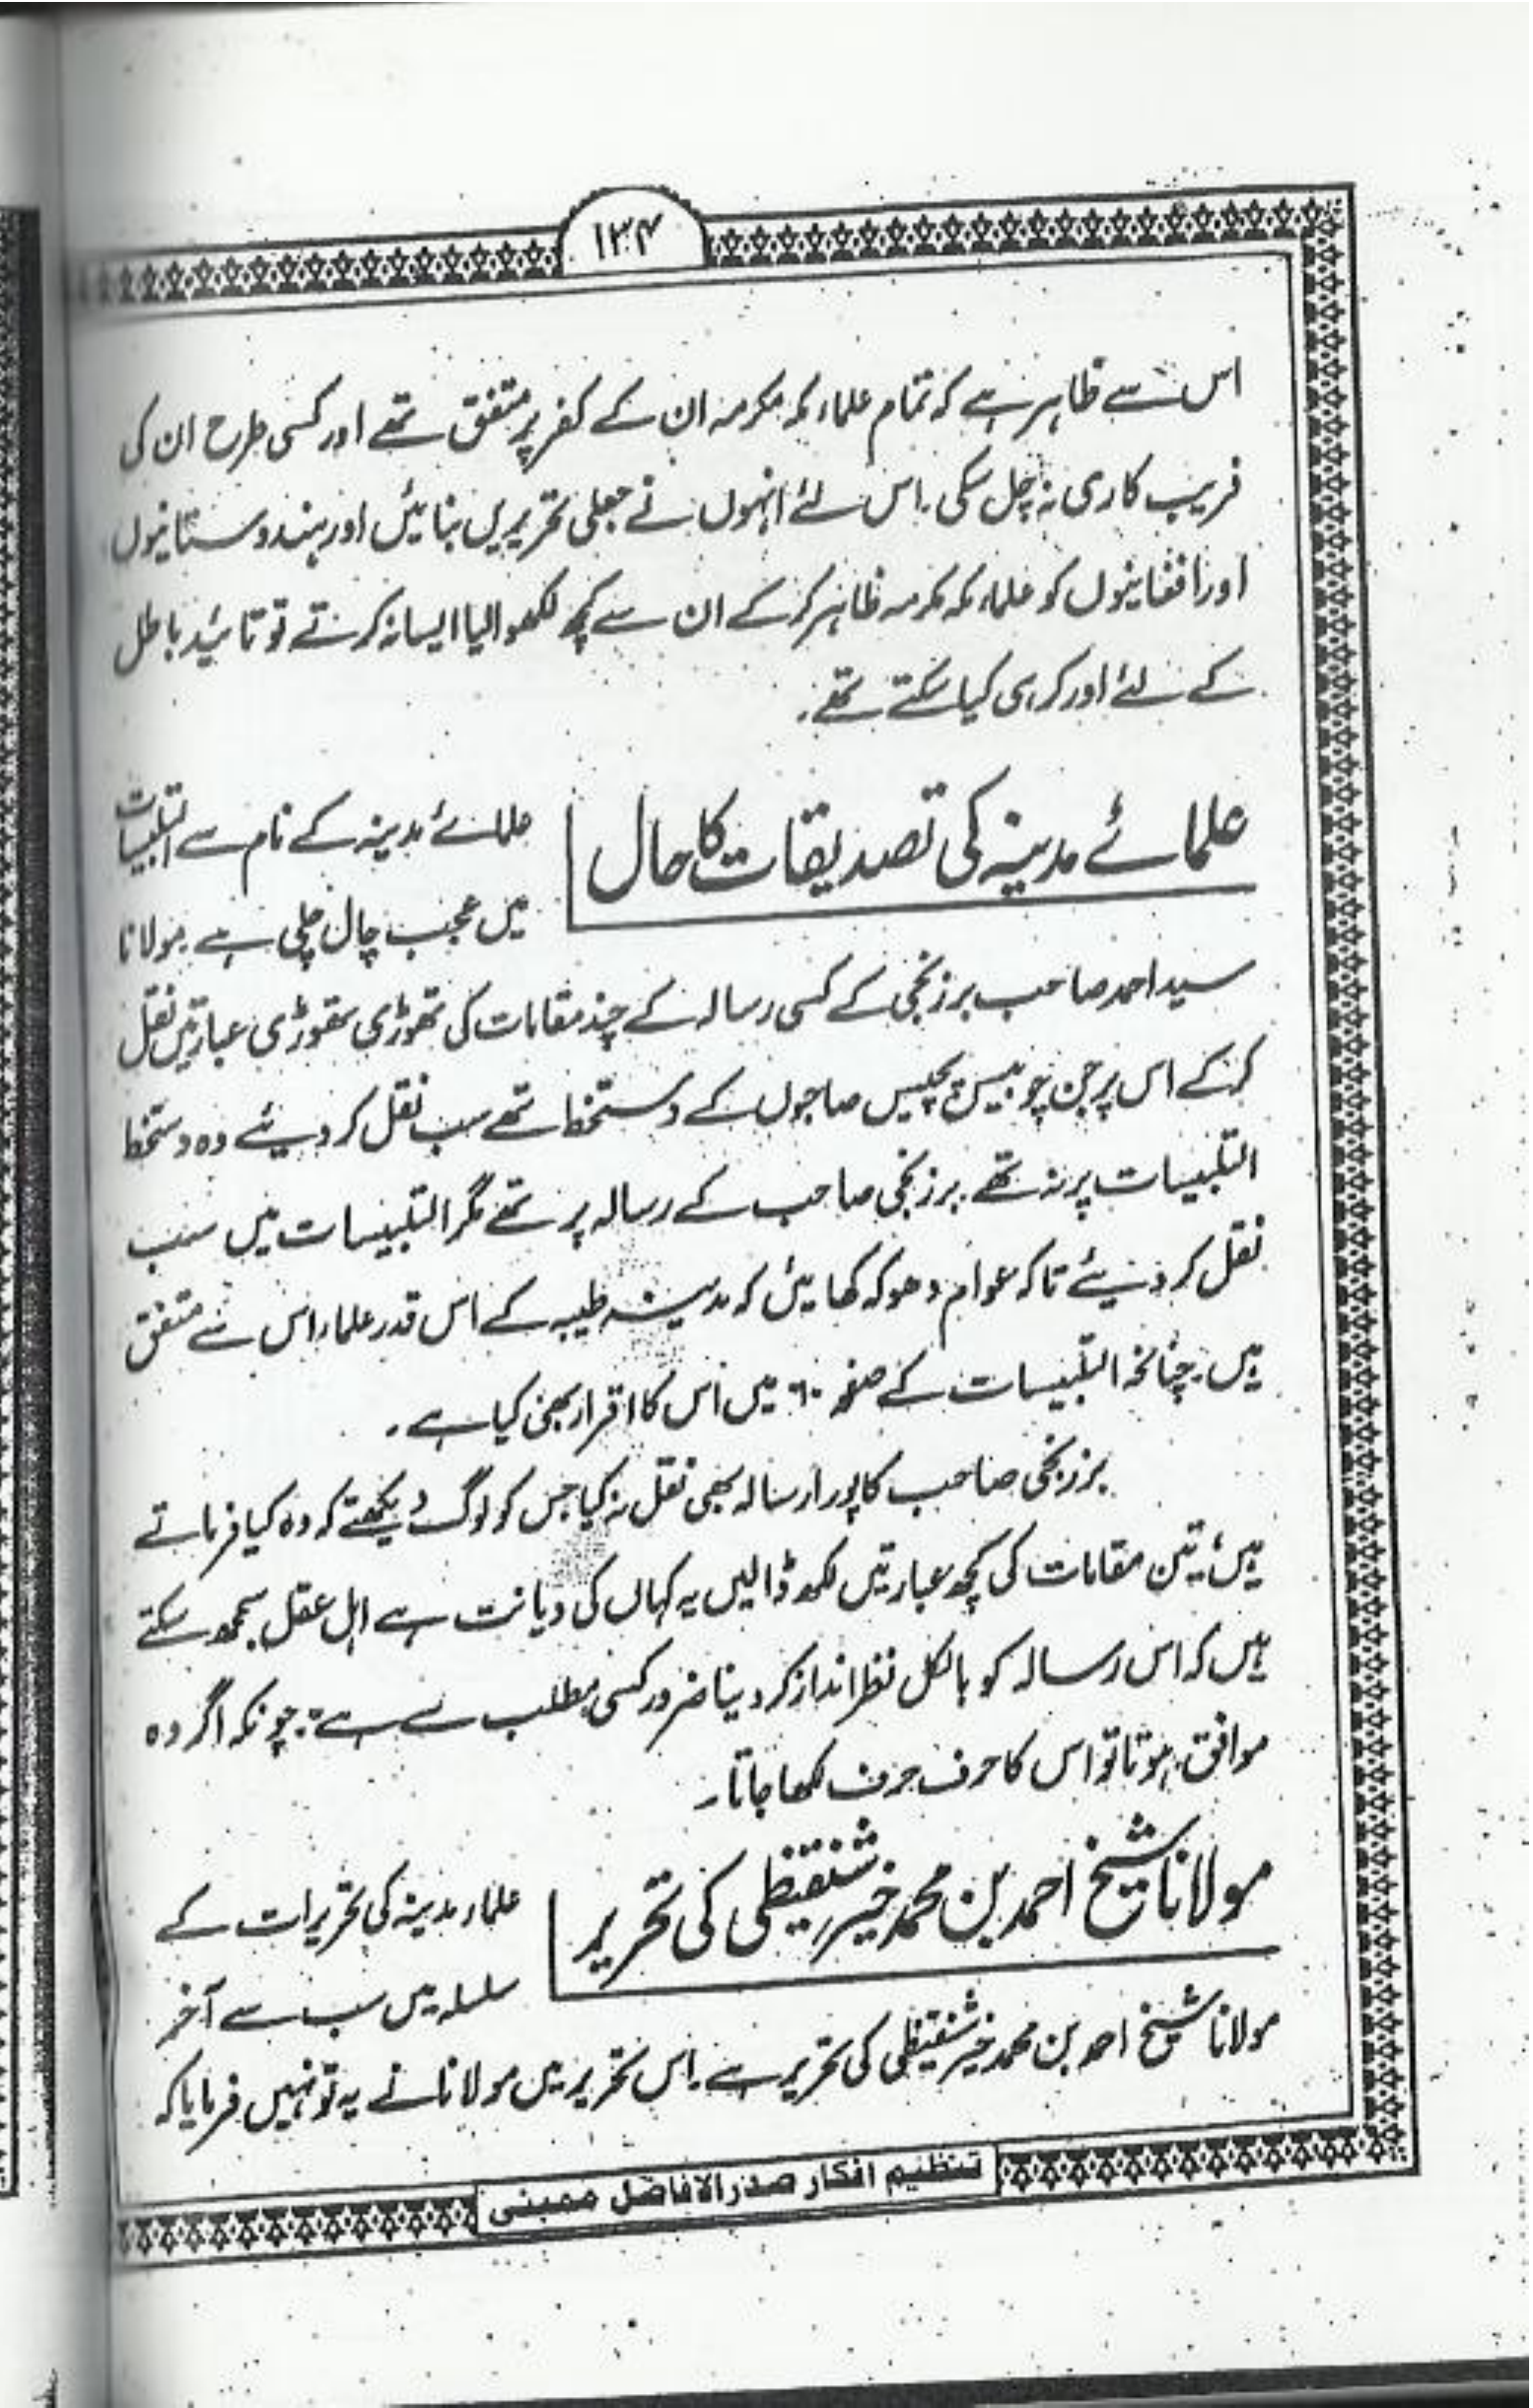 ۱۳۴
اس سے ظاہر ہے کہ تمام علماء مکہ مکرمہ ان کے کفر پر متفق تھے اور کسی طرح ان کی
فریب کاری نہ چل سکی۔ اس لئے انہوں نے جعلی تحریریں بنائیں اور ہندوستانیوں
اور افغانیوں کو علماء مکہ مکرمہ ظاہر کر کے ان سے کچھ لکھوا لیا ایسا نہ کرتے تو تائید باطل
کے لئے اور کر ہی کیا سکتے تھے۔
علمائے مدینہ کی تصدیقات کا حال
علمائے مدینہ کے نام سے التلبیسات
میں عجب چال چلی ہے۔ مولانا
سید احمد صاحب برزنجی کے کسی رسالہ کے چند مقامات کی تھوڑی تھوڑی عبارتیں نقل
کر کے اس پر جن چوبیس پچیس صاحبوں کے دستخط تھے سب نقل کر دیئے وہ دستخط
التلبیسات پر نہ تھے۔ برزنجی صاحب کے رسالہ پر تھے مگر التلبیسات میں سب
نقل کر دیئے تاکہ عوام دھوکہ کھائیں کہ مدینہ طیبہ کے اس قدر علماء اس سے متفق
ہیں۔ چنانچہ التلبیسات کے صفحہ ۶۰ میں اس کا اقرار بھی کیا ہے۔
برزنجی صاحب کا پورا رسالہ بھی نقل نہ کیا جس کو لوگ دیکھتے کہ وہ کیا فرماتے
ہیں، تین مقامات کی کچھ عبارتیں لکھ ڈالیں یہ کہاں کی دیانت ہے اہل عقل سمجھ سکتے
ہیں کہ اس رسالہ کو بالکل نظر انداز کر دینا ضرور کسی مطلب سے ہے۔ چونکہ اگر وہ
موافق ہوتا تو اس کا حرف حرف لکھا جاتا۔
مولانا شیخ احمد بن محمد خیر شنقیطی کی تحریر
علماء مدینہ کی تحریرات کے
سلسلہ میں سب سے آخر
مولانا شیخ احمد بن محمد خیر شنقیطی کی تحریر ہے۔ اس تحریر میں مولانا نے یہ تو نہیں فرمایا کہ
تنظیم افکار صدر الافاضل ممبئی